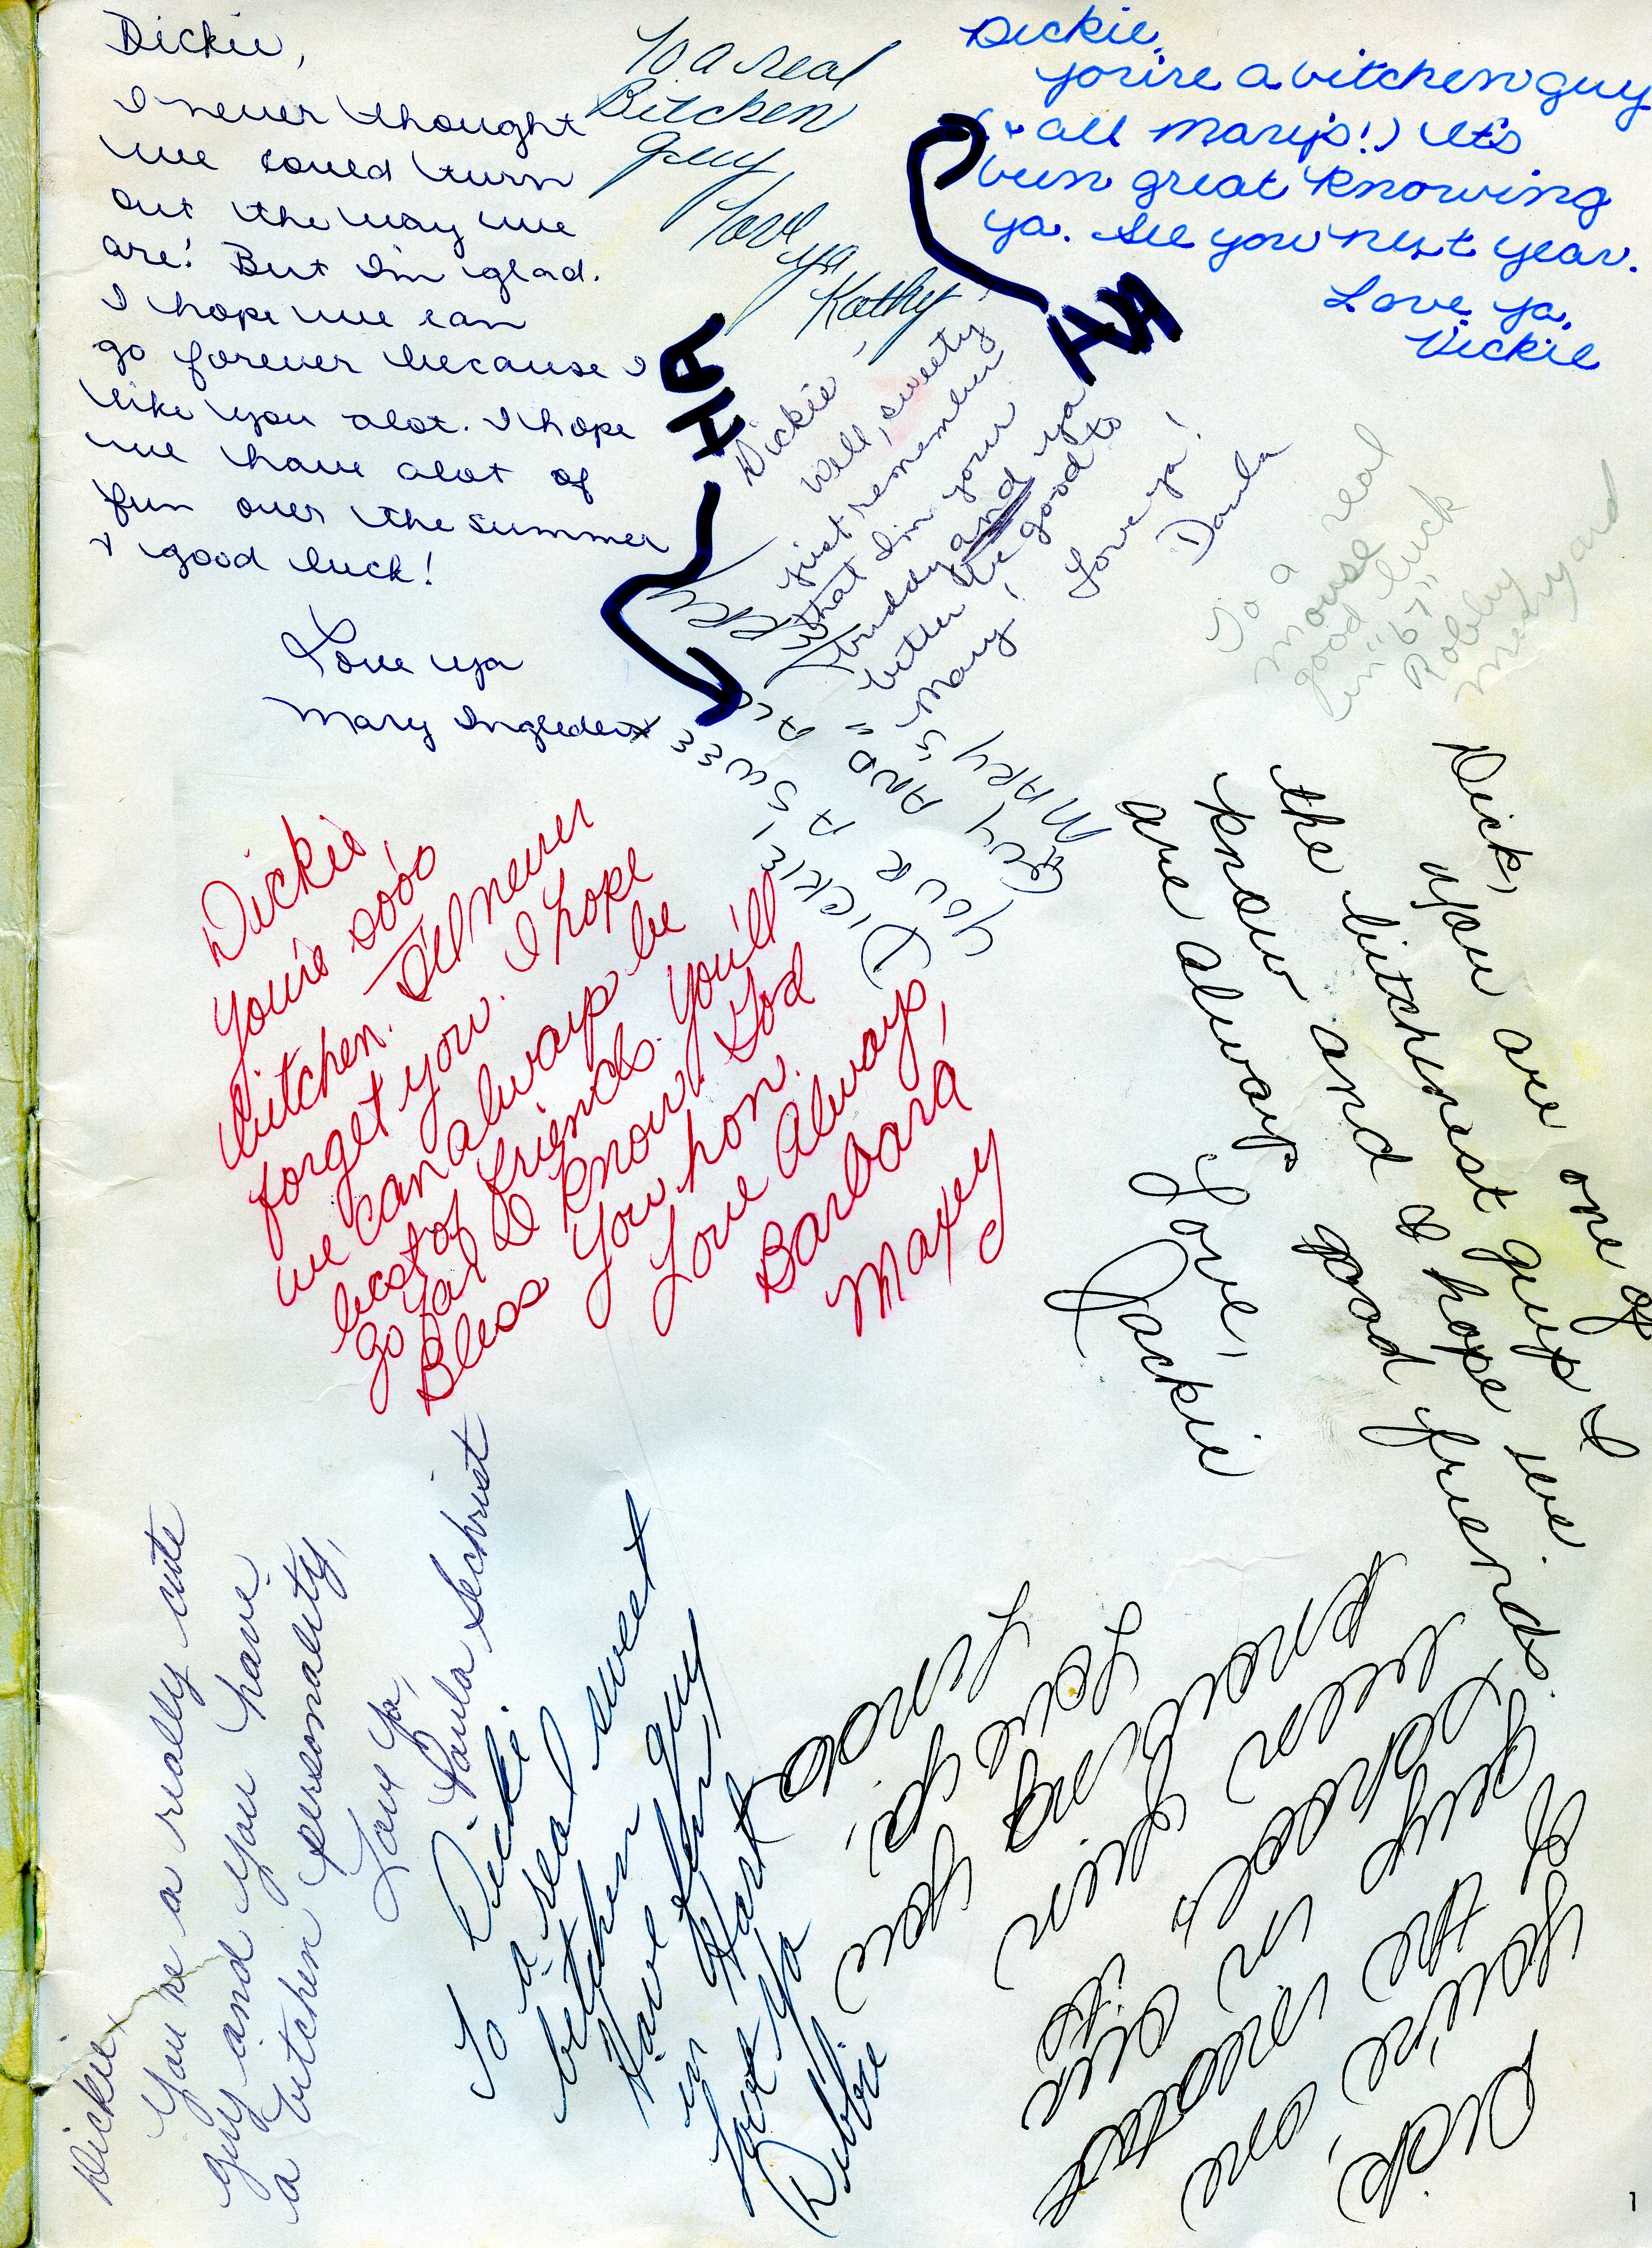 Dickie,
I never thought
we could turn
out the way we
are! But I'm glad.
I hope we can
go forever because I
like you alot. I hope
we have alot of
fun over the summer
& good luck!
Love ya
Mary
To a real
Bitchen
guy
Love
ya
Kathy
Dickie,
you're a bitchen guy
(& all Mary's!) It's
been great knowing
ya. See you next year.
Love ya,
Vickie
HA
HA
Dickie -
Well, sweety
just remember
that I'm your
buddy and ya
better be good to
Mary!
Love ya!
Darla
To a
mouse real
good luck
in "67"
Robby
DICKIE,
YOUR A SWEE
GUY AND "ALL
MARY'S"
Dickie,
You're sooo
bitchen. I'll never
forget you. I hope
we can always be
best of friends. You'll
go far I know. God
Bless you hon.
Love Always,
Barbara
Maxey
Dick,
you are one of
the bitchinest guys I
know and I hope we
are always good friends.
Love,
Jackie
Dickie,
You're a really cute
guy and you have
a bitchen personality,
Love Ya,
Paula Sechrist
Dickie,
To a real sweet
bitchen guy
Have fun
in Hart
Love Ya
Debbie
Dick,
You're one
of the neatest
guys in the
school & it
been fun
knowing you
Love ya,